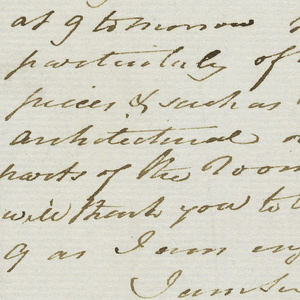 at 9 tomorrow
particularly of
pieces & such as
architectural
parts of the Room
will thank you to
9 as I am
I am